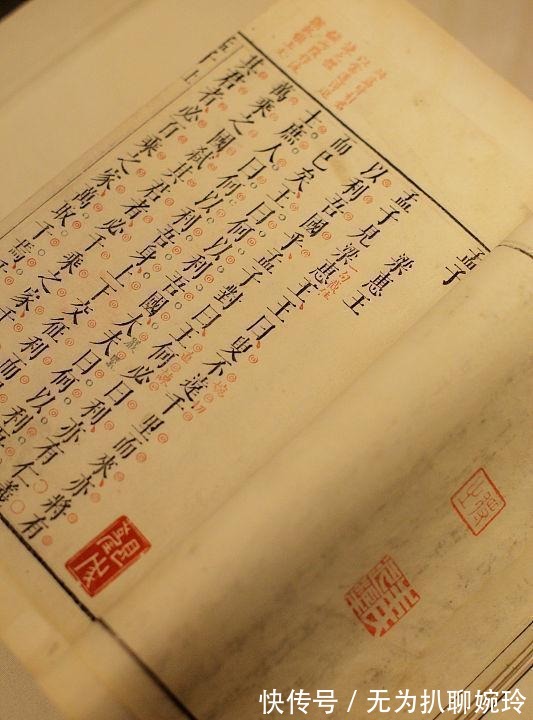 孟子
梁惠王
孟子見梁惠王王曰叟不遠千里而來亦將有
以利吾國乎孟子對曰王何必曰利亦有仁義
而已矣王曰何以利吾國大夫曰何以利吾
士庶人曰何以利吾身上下交征利而
萬乘之國弒其君者必千乘之家千
其君者必百乘之家萬取千焉
快传号 / 无为扒聊婉玲